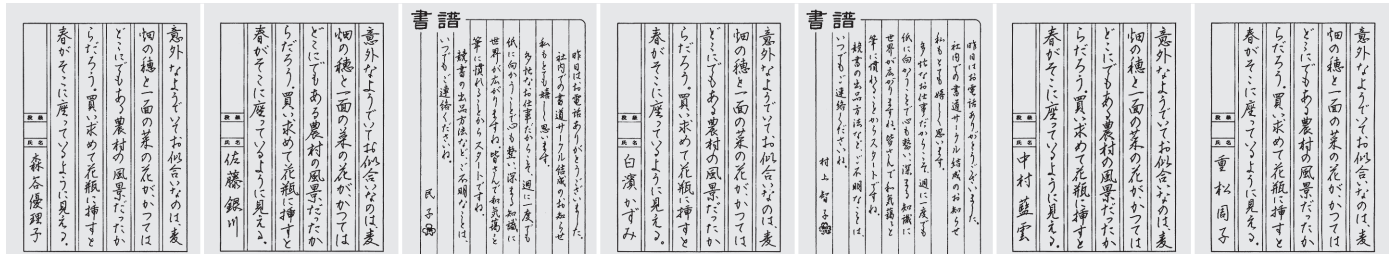 意外なようでいてお似合いなのは、麦
畑の穂と一面の菜の花がかつては
どこにでもある農村の風景だったか
らだろう。買い求めて花瓶に挿すと
春がそこに座っているように見える。
段級
氏名
森谷優理子
意外なようでいてお似合いなのは、麦
畑の穂と一面の菜の花がかつては
どこにでもある農村の風景だったか
らだろう。買い求めて花瓶に挿すと
春がそこに座っているように見える。
段級
氏名
佐藤銀川
書譜
昨日はお電話ありがとうございました。
社内での書道サークル結成のお知らせ
私もとても嬉しく思います。
多忙なお仕事だからこそ、週に一度でも
紙に向かうことで心も整い、深まる知識に
世界が広がりますね。皆さんで和気藹々と
筆に慣れることからスタートですね。
競書の出品方法など、ご不明なことは、
いつでもご連絡くださいね。
民子
意外なようでいてお似合いなのは、麦
畑の穂と一面の菜の花がかつては
どこにでもある農村の風景だったか
らだろう。買い求めて花瓶に挿すと
春がそこに座っているように見える。
段級
氏名
白濱かずみ
書譜
昨日はお電話ありがとうございました。
社内での書道サークル結成のお知らせ
私もとても嬉しく思います。
多忙なお仕事だからこそ、週に一度でも
紙に向かうことで心も整い、深まる知識に
世界が広がりますね。皆さんで和気藹々と
筆に慣れることからスタートですね。
競書の出品方法など、ご不明なことは、
いつでもご連絡くださいね。
村上智子
意外なようでいてお似合いなのは、麦
畑の穂と一面の菜の花がかつては
どこにでもある農村の風景だったか
らだろう。買い求めて花瓶に挿すと
春がそこに座っているように見える。
段級
氏名
中村藍雲
意外なようでいてお似合いなのは、麦
畑の穂と一面の菜の花がかつては
どこにでもある農村の風景だったか
らだろう。買い求めて花瓶に挿すと
春がそこに座っているように見える。
段級
氏名
重松周子